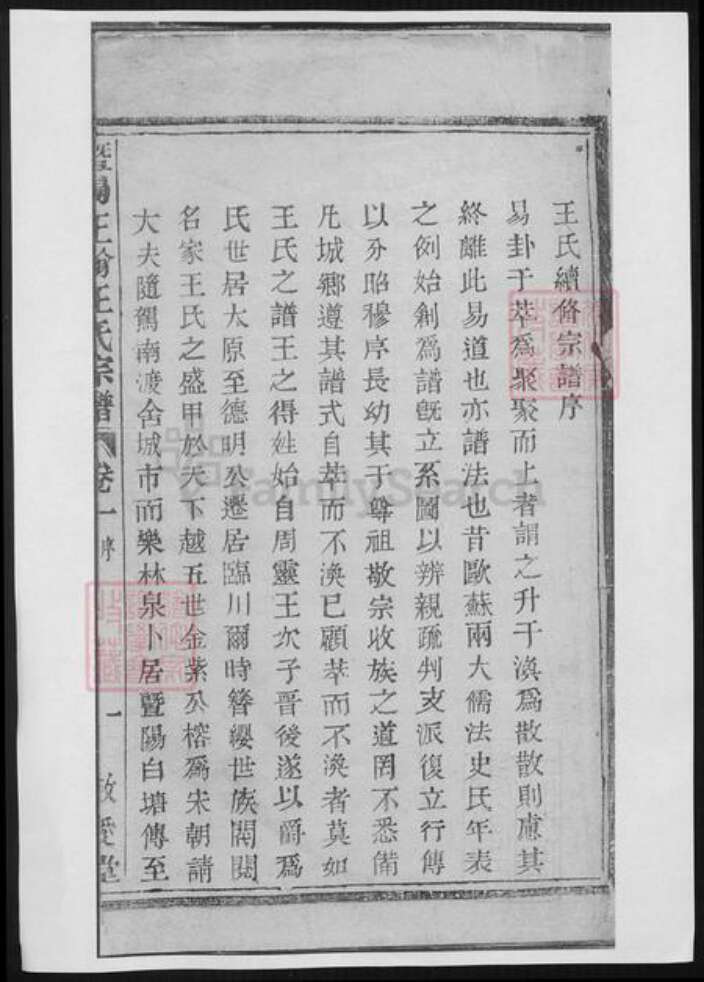 王氏續脩宗譜序
易卦于萃爲聚聚而上者謂之升于渙爲散散則慮其
終離此易道也亦譜法也昔歐蘇兩大儒法史氏年表
之例始創爲譜旣立系圖以辨親疏判支派復立行傳
以分昭穆序長幼其于尊祖敬宗收族之道罔不悉備
凡城鄉遵其譜式自萃而不渙已顧萃而不渙者莫如
王氏之譜王之得姓始自周靈王次子晉後遂以爵爲
氏世居太原至德明公遷居臨川爾時簪纓世族閥閱
名家王氏之盛甲於天下越五世金紫公榕爲宋朝請
大夫隨駕南渡舍城市而樂林泉卜居暨陽白塘傳至
暨陽 王氏宗譜 卷一 序 一 敬愛堂
FamilySearch